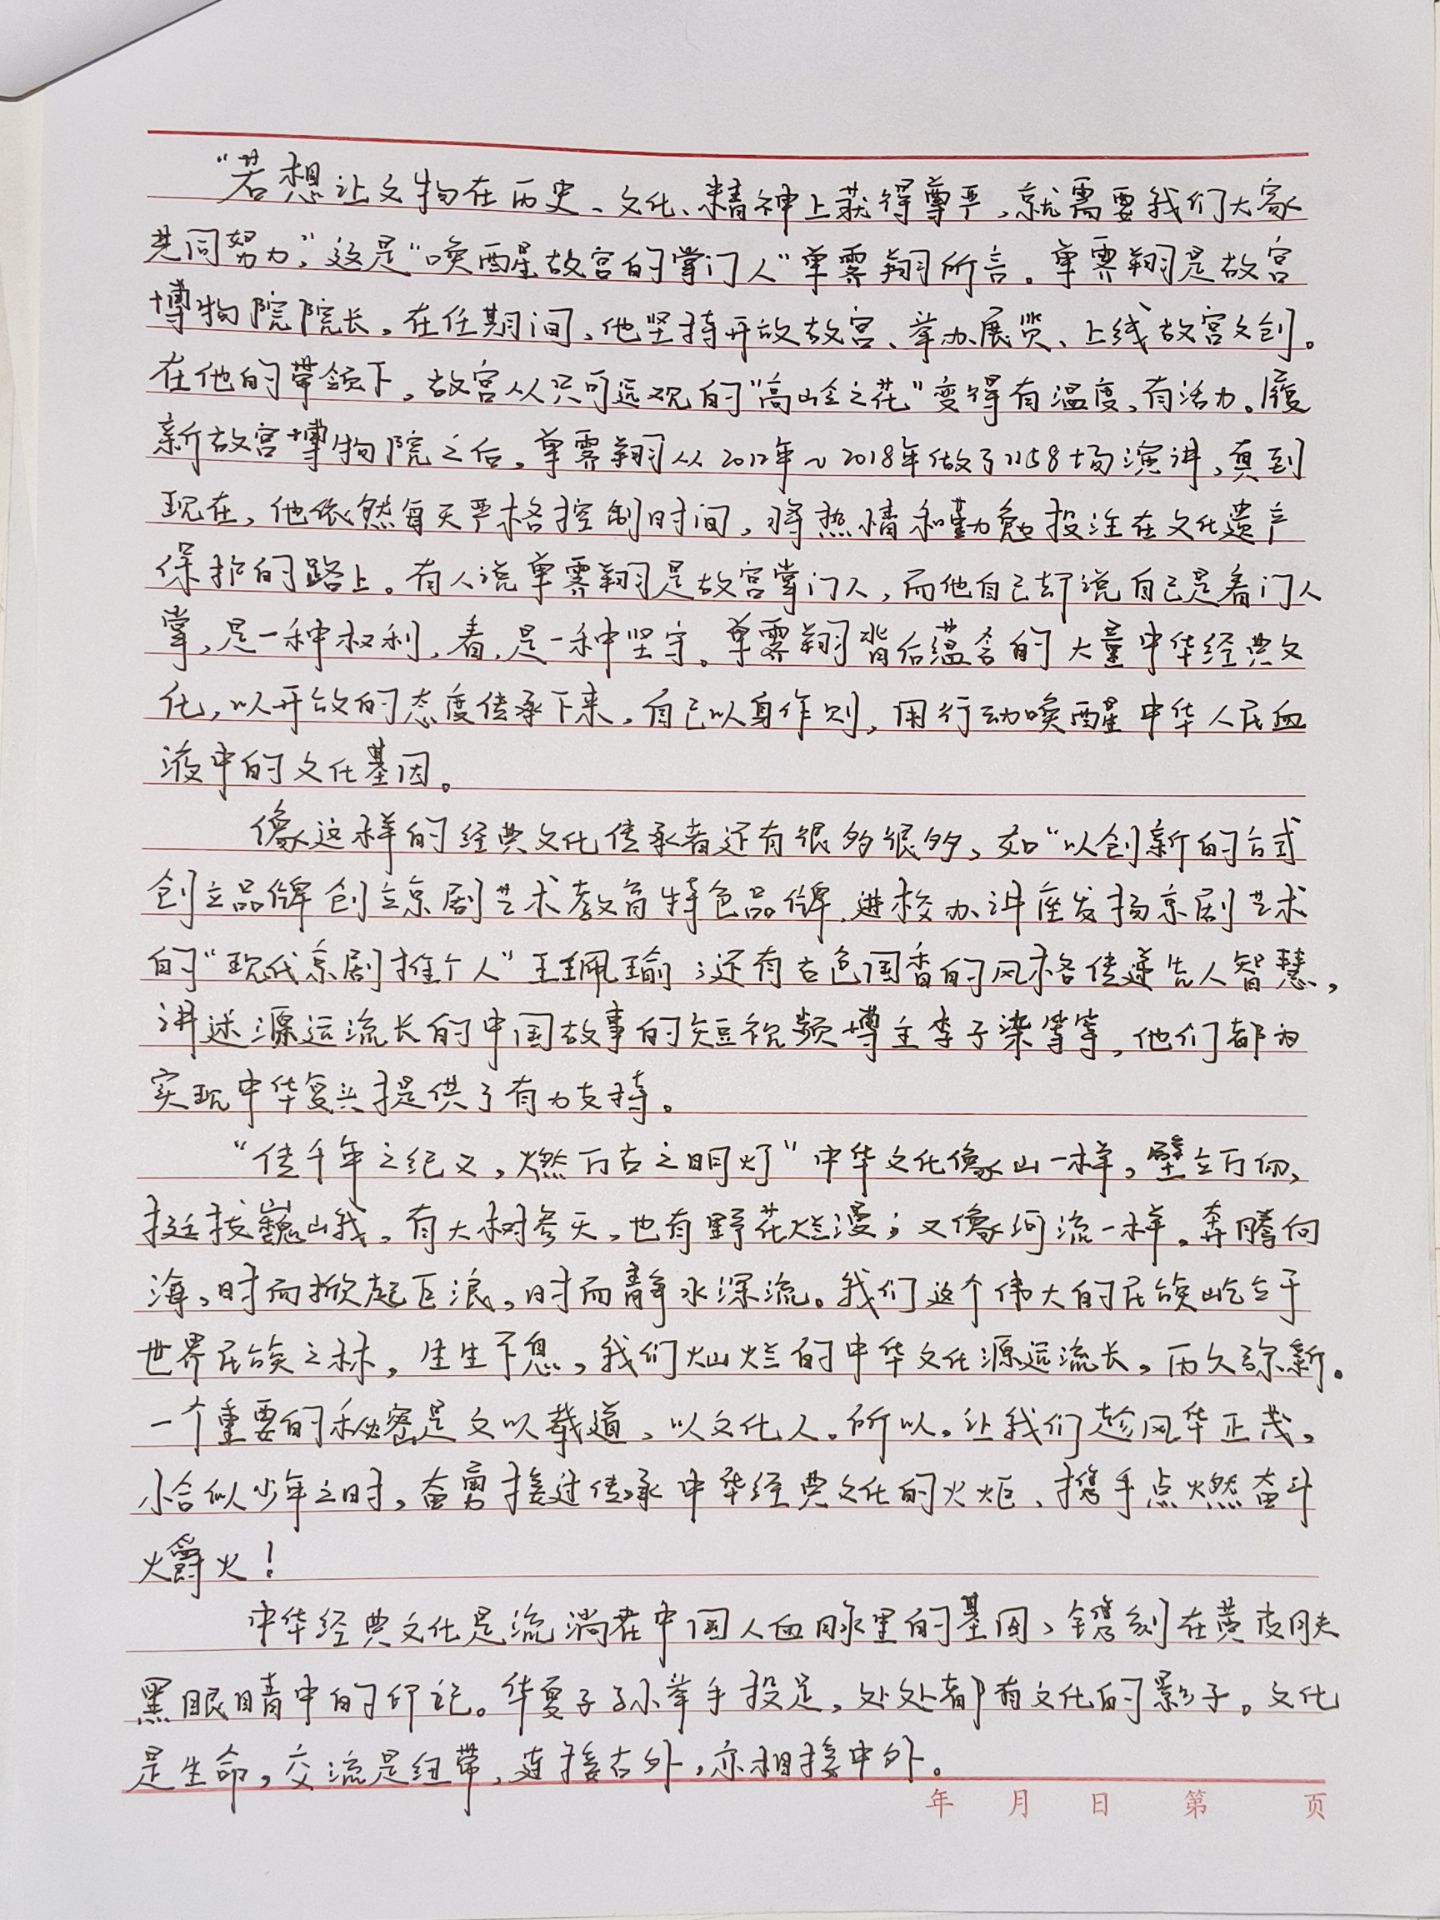 “若想让文物在历史、文化、精神上获得尊严，就需要我们大家
共同努力，”这是“唤醒故宫的掌门人”单霁翔所言。单霁翔是故宫
博物院院长，在任期间，他坚持开放故宫、举办展览、上线故宫文创。
在他的带领下，故宫从只可远观的“高岭之花”变得有温度，有活力。履
新故宫博物院之后，单霁翔从2012年~2018年做了1158场演讲，真到
现在，他依然每天严格控制时间，将热情和勤勉投注在文化遗产
保护的路上。有人说单霁翔是故宫掌门人，而他自己却说自己是看门人
掌，是一种权利，看，是一种坚守。单霁翔背后蕴含的大量中华经典文
化，以开放的态度传承下来，自己以身作则，用行动唤醒中华人民血
液中的文化基因。
像这样的经典文化传承者还有很多很多，如“以创新的方式
创立品牌创立京剧艺术教育特色品牌，进校办讲座发扬京剧艺术
的“现代京剧推介人”王珮瑜；还有古色国香的风格传递先人智慧，
讲述源远流长的中国故事的短视频博主李子柒等等，他们都为
实现中华复兴提供了有力支持。
“传千年之纪义，燃万古之明灯”中华文化像山一样，壁立万仞，
挺拔巍峨，有大树参天，也有野花烂漫；又像河流一样，奔腾向
海，时而掀起巨浪，时而静水深流。我们这个伟大的民族屹立于
世界民族之林，生生不息，我们灿烂的中华文化源远流长，历久弥新。
一个重要的秘密是文以载道，以文化人。所以，让我们趁风华正茂，
恰似少年之时，奋勇接过传承中华经典文化的火炬，携手点燃奋斗
爝火！
中华经典文化是流淌在中国人血脉里的基因，镌刻在黄皮肤
黑眼睛中的印记。华夏子孙举手投足，处处都有文化的影子。文化
是生命，交流是纽带，连接古外，亦相接中外。
年 月 日 第 页